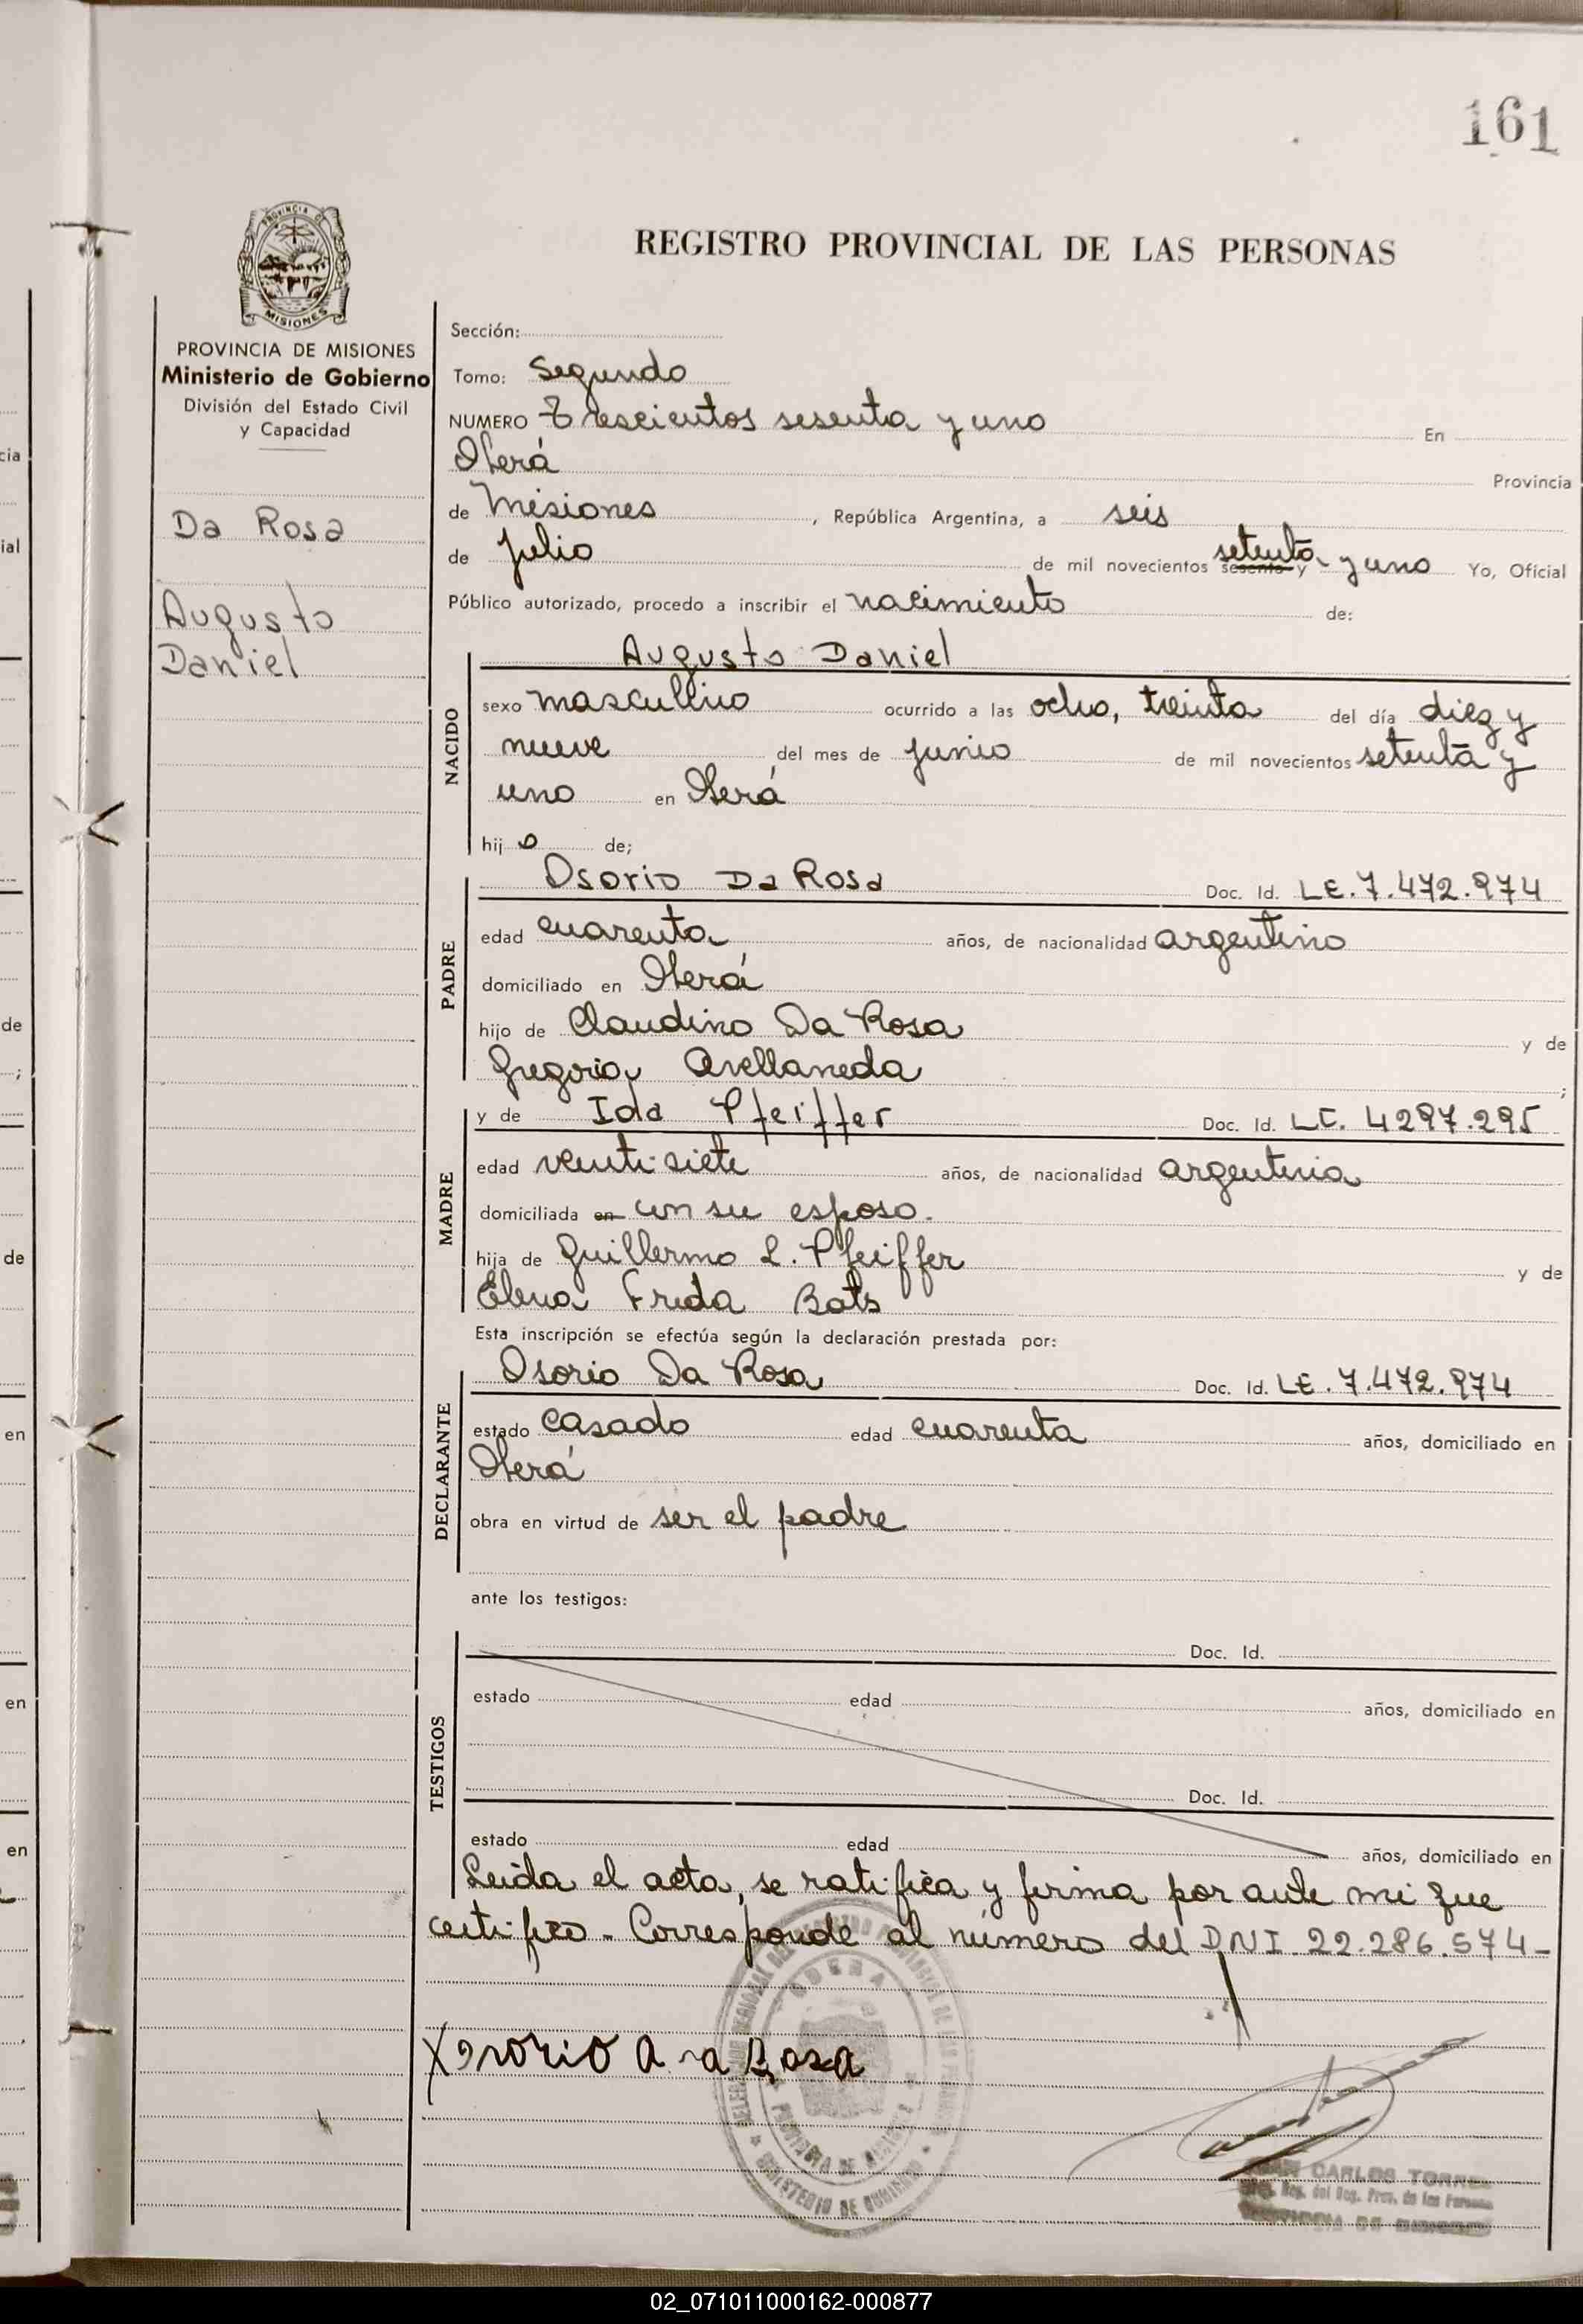 161
REGISTRO PROVINCIAL DE LAS PERSONAS
PROVINCIA DE MISIONES
Ministerio de Gobierno
División del Estado Civil
y Capacidad
Da Rosa
Augusto
Daniel
Sección:
Tomo: Segundo
NUMERO Trescientos sesenta y uno En
Oberá Provincia
de Misiones, República Argentina, a seis
de julio de mil novecientos sesenta y setenta y uno Yo, Oficial
Público autorizado, procedo a inscribir el nacimiento de:
NACIDO
Augusto Daniel
sexo masculino ocurrido a las ocho, treinta del día diez y
nueve del mes de junio de mil novecientos setenta y
uno en Oberá
hijo de;
PADRE
Osorio Da Rosa Doc. Id. LE. 7.472.974
edad cuarenta años, de nacionalidad argentino
domiciliado en Oberá
hijo de Claudino Da Rosa y de
Gregoria Avellaneda ;
MADRE
y de Ida Pfeiffer Doc. Id. LC. 4297.295
edad veinti siete años, de nacionalidad argentina
domiciliada en con su esposo.
hija de Guillermo L. Pfeiffer y de
Elena Frida Bats
Esta inscripción se efectúa según la declaración prestada por:
DECLARANTE
Osorio Da Rosa Doc. Id. LE. 7.472.974
estado casado edad cuarenta años, domiciliado en
Oberá
obra en virtud de ser el padre
ante los testigos:
TESTIGOS
Doc. Id.
estado edad años, domiciliado en
Doc. Id.
estado edad años, domiciliado en
Leida el acta, se ratifica y firma por ante mi que
certifico - Corresponde al número del DNI 22.286.574-
OBERA
PROVINCIA DE MISIONES
MINISTERIO DE GOBIERNO
CARLOS TORRES
del Reg. Prov. de las Personas
PROVINCIA DE MISIONES
02_071011000162-000877